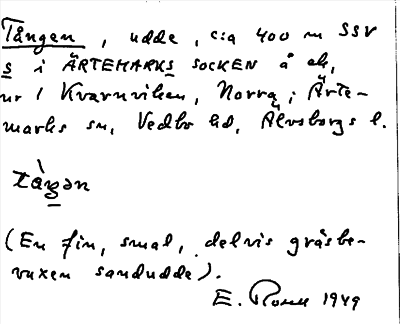 Tången, udde, c:a 400 m SSV
s i ÄRTEMARKS SOCKEN å ek,
nr 1 Kvarnviken, Norra, i Ärte-
marks sn, Vedbo hd, Älvsborgs l.
tàŋən
(En fin, smal, delvis gräsbe-
vuxen sandudde).
E. 1949